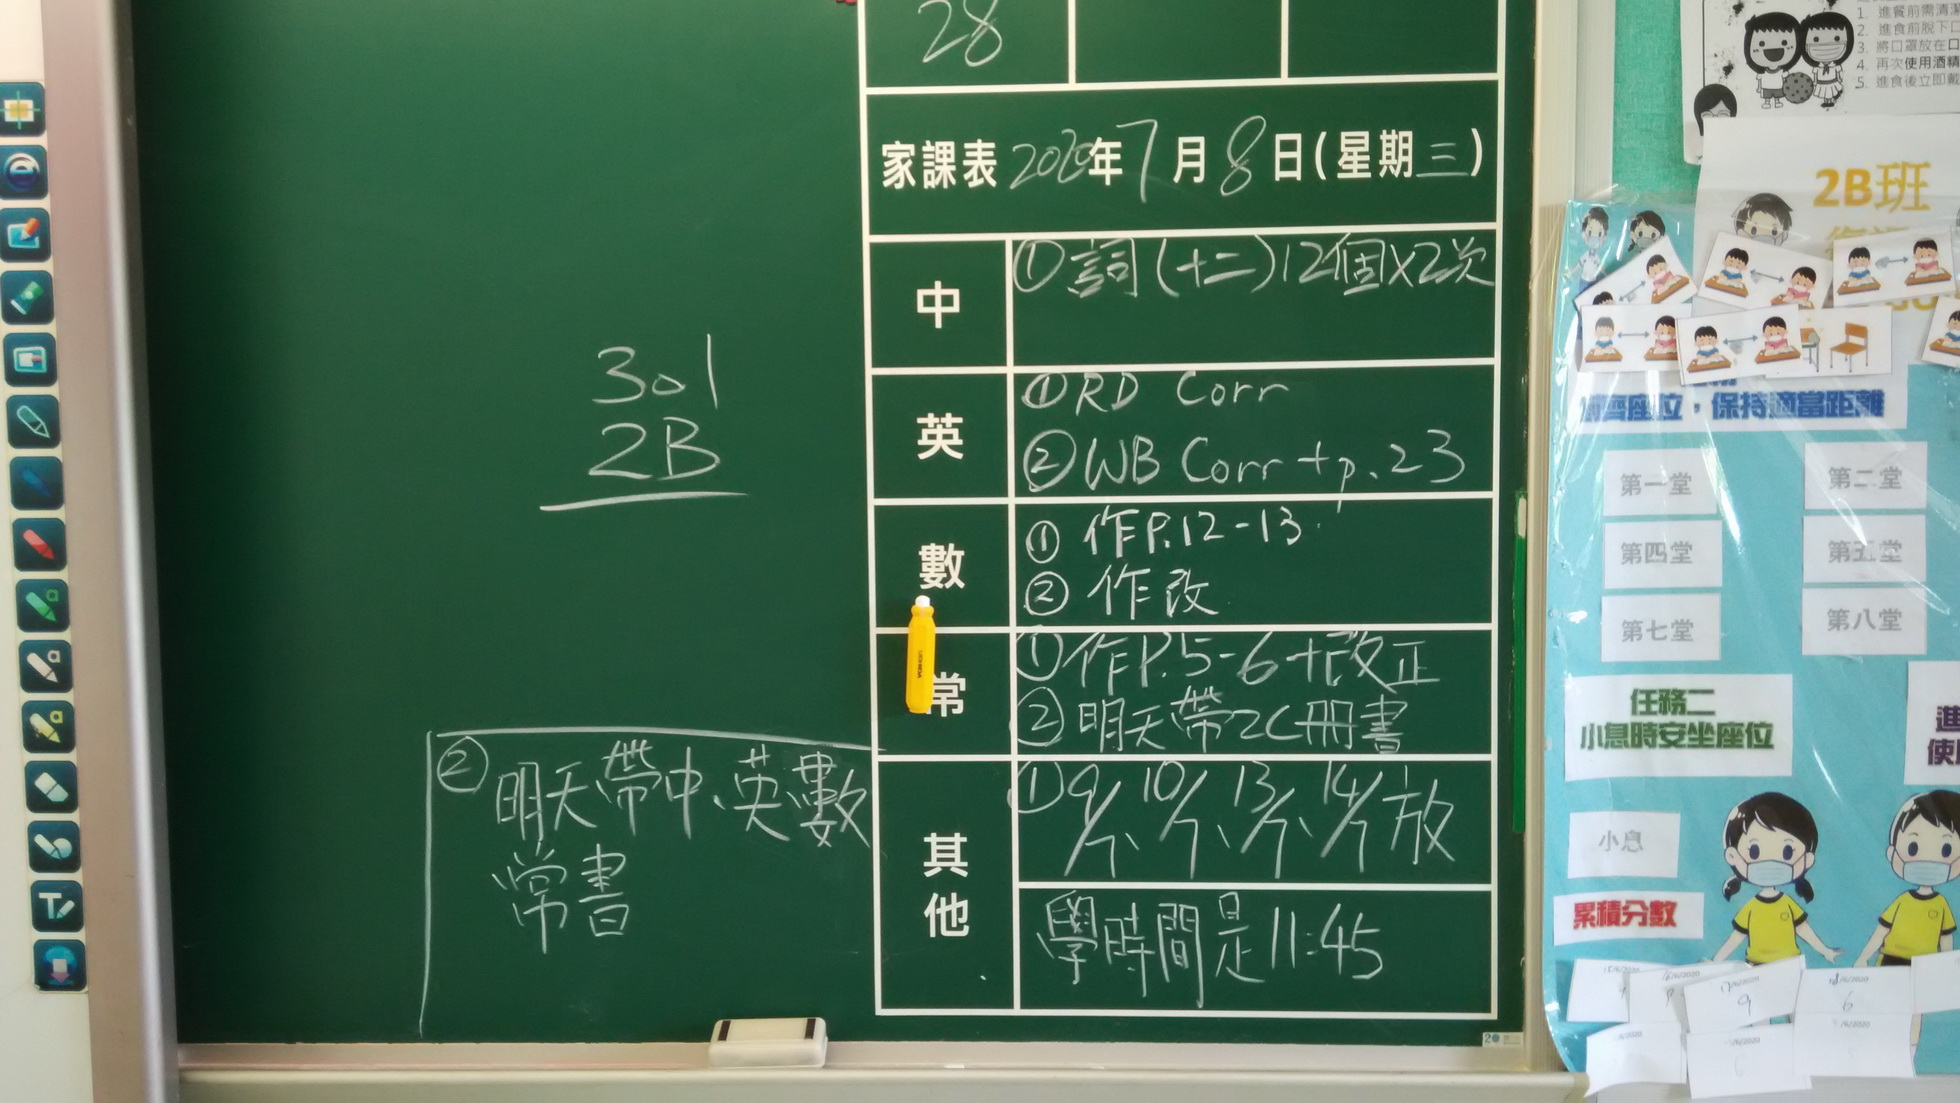 28
家課表 2020年7月8日(星期三)
中
①詞(十二)12個×2次
英
①RD Corr
②WB Corr + p.23
數
①作P.12-13
②作改
常
①作P.5-6+改正
②明天帶2C冊書
其他
①9/7、10/7、13/7、14/7放
學時間是11:45
301
2B
②明天帶中、英、數
常書
1. 進餐前需清潔
2. 進食前脫下口
3. 將口罩放在口
4. 再次使用酒精
5. 進食後立即戴
2B班
座位,保持適當距離
第一堂
第二堂
第四堂
第五堂
第七堂
第八堂
任務二
小息時安坐座位
小息
累積分數
9
6